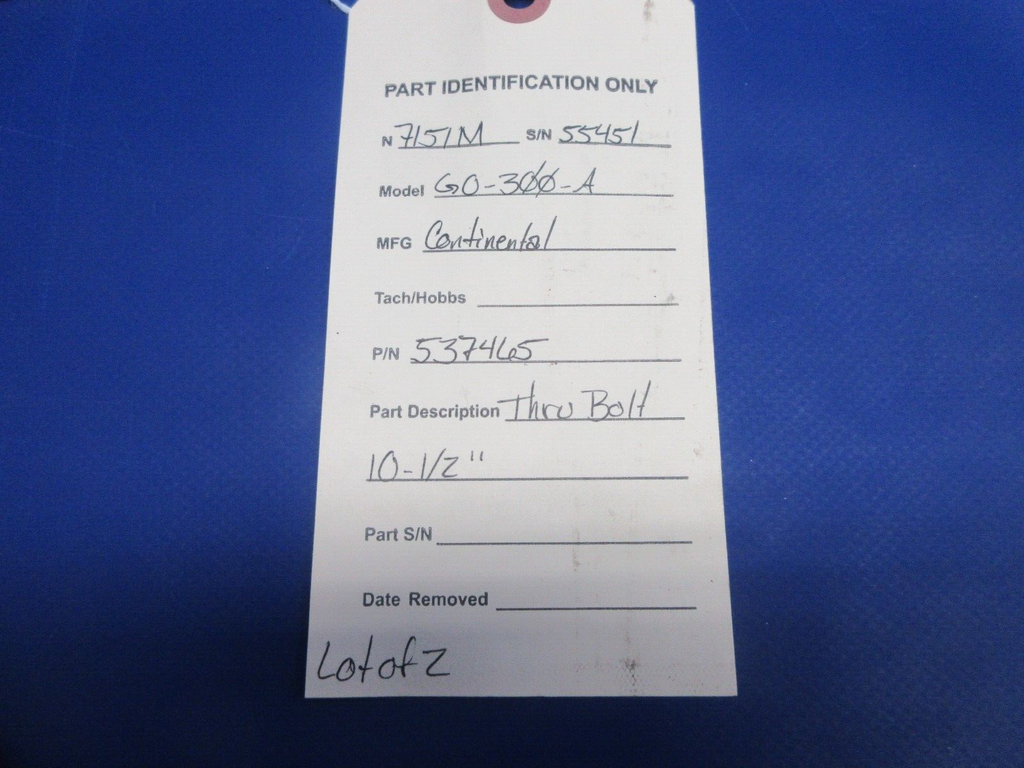 PART IDENTIFICATION ONLY
N 7151M S/N 55451
Model GO-300-A
MFG Continental
Tach/Hobbs
P/N 537465
Part Description Thru Bolt
10-1/2"
Part S/N
Date Removed
Lot of 2